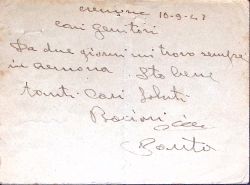 cremona 16-9-43
cari genitori
Da due giorni mi trovo sempre
in cremona Sto bene
tanti Cari Saluti
Bacioni